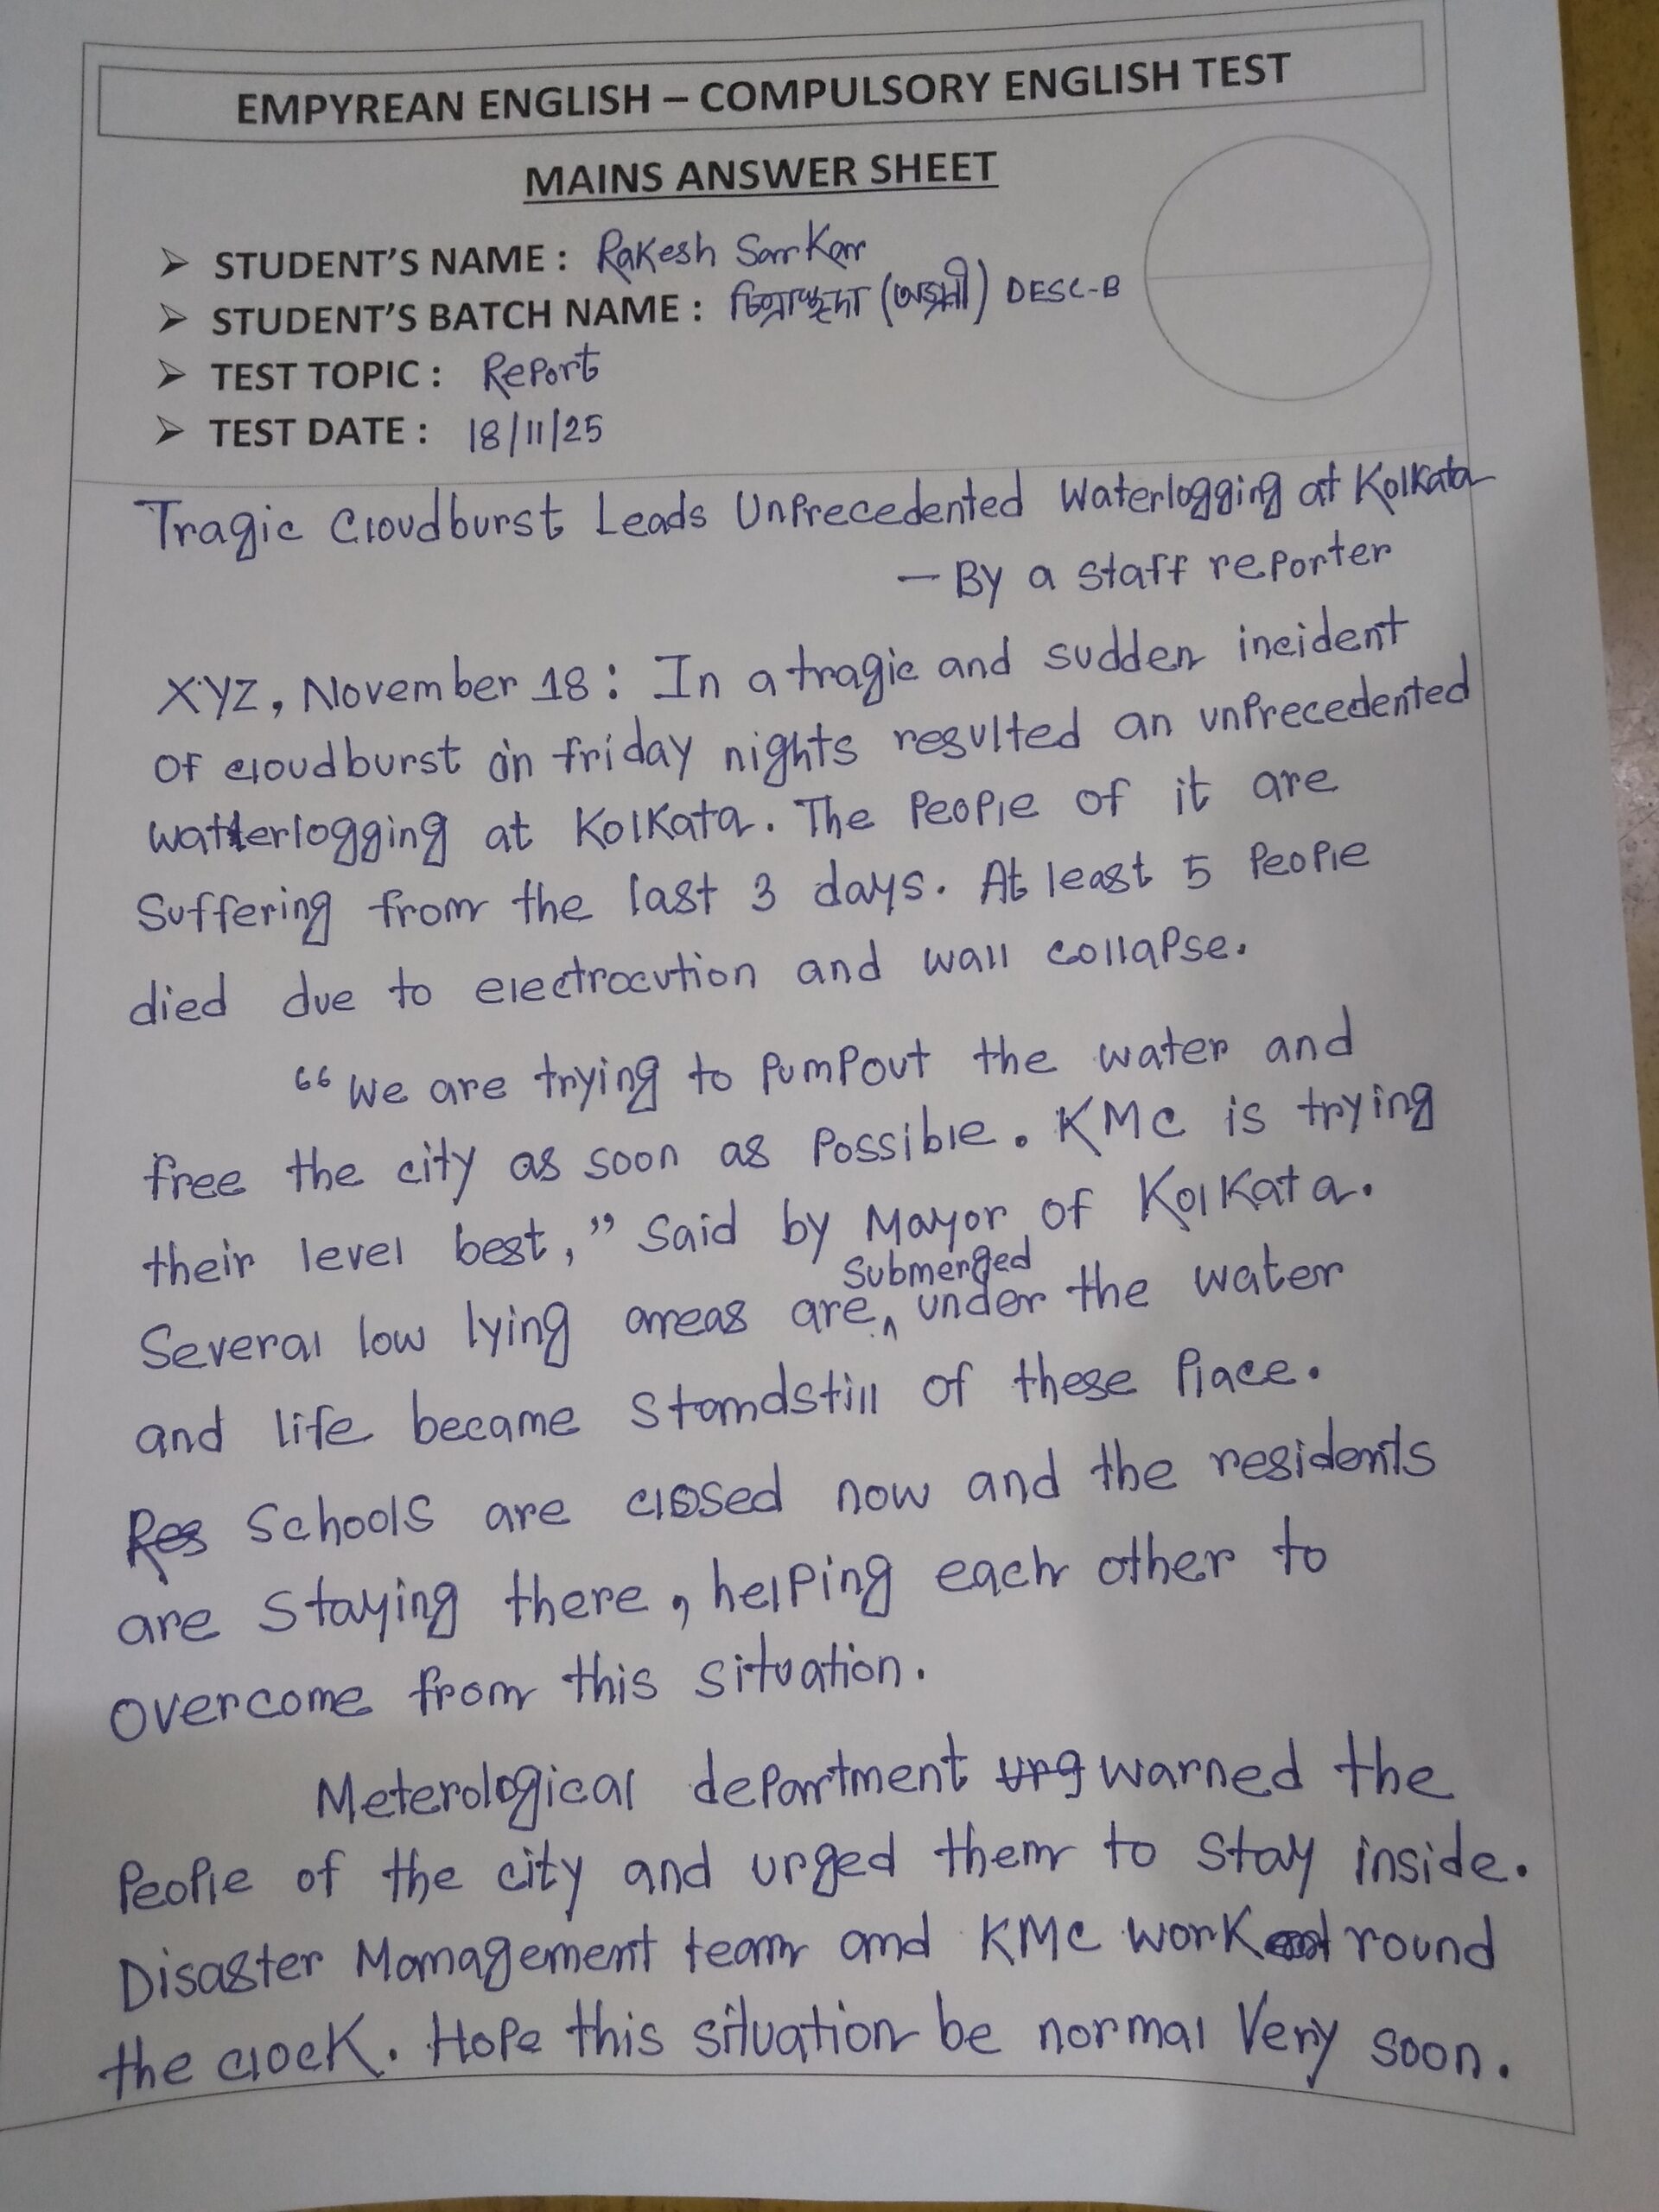 EMPYREAN ENGLISH – COMPULSORY ENGLISH TEST
MAINS ANSWER SHEET
➤ STUDENT'S NAME : Rakesh Sarkar
➤ STUDENT'S BATCH NAME : DESC-B
➤ TEST TOPIC : Report
➤ TEST DATE : 18/11/25
Tragic Cloudburst Leads Unprecedented Waterlogging at Kolkata
— By a staff reporter
XYZ, November 18 : In a tragic and sudden incident
of cloudburst on friday nights resulted an unprecedented
waterlogging at Kolkata. The people of it are
suffering from the last 3 days. At least 5 people
died due to electrocution and wall collapse.
“We are trying to pumpout the water and
free the city as soon as possible. KMC is trying
their level best,” said by Mayor of Kolkata.
Several low lying areas are submerged under the water
and life became standstill of these place.
Res Schools are closed now and the residents
are staying there, helping each other to
overcome from this situation.
Meterological department urg warned the
people of the city and urged them to stay inside.
Disaster Management team and KMC work round
the clock. Hope this situation be normal very soon.